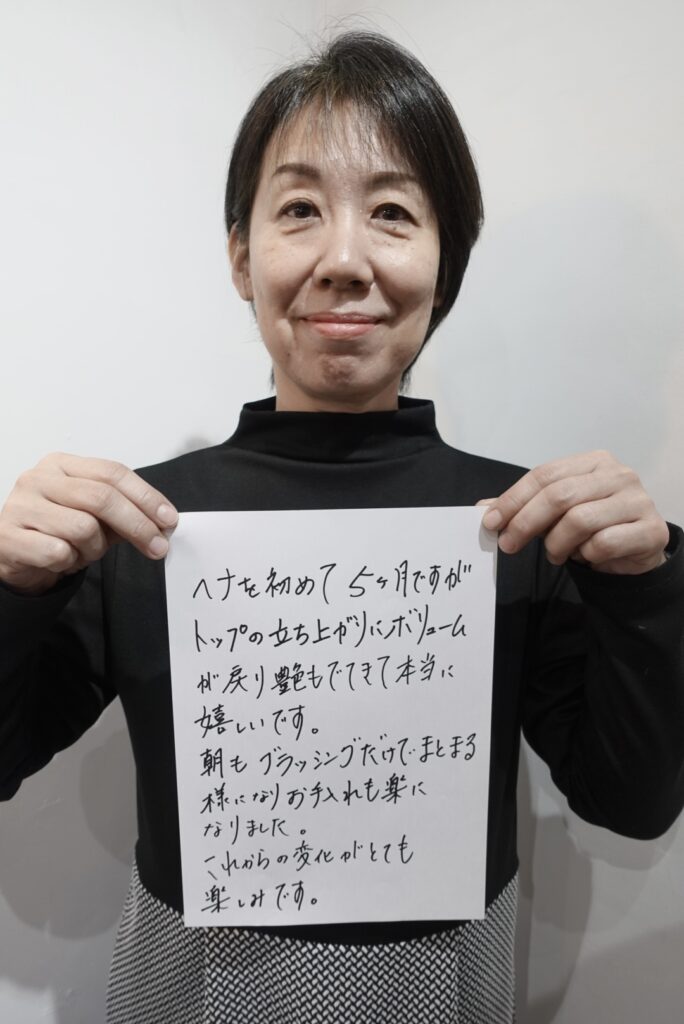 ヘナを初めて5ヶ月ですが
トップの立ち上がりにボリューム
が戻り艶もでてきて本当に
嬉しいです。
朝もブラッシングだけでまとまる
様になりお手入れも楽に
なりました。
これからの変化がとても
楽しみです。